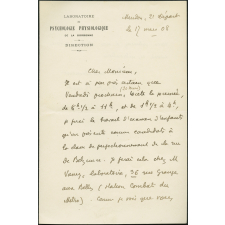 LABORATOIRE
DE
PSYCHOLOGIE PHYSIOLOGIQUE
DE LA SORBONNE
DIRECTION
le 17 mars 08
Cher Monsieur,
Il est à peu près certain que
Vendredi prochain, toute la journée
de 8h 1/2 à 11h, et de 1h 1/2 à 4h,
je ferai le travail d'examen d'enfants
qu'on présente comme candidats à
la classe de perfectionnement de la rue
de Belzunce. Je ferai cela chez M
Vaney, laboratoire, 36 rue Grange
aux Belles (station Combat du
Métro). Comme je sais que vous